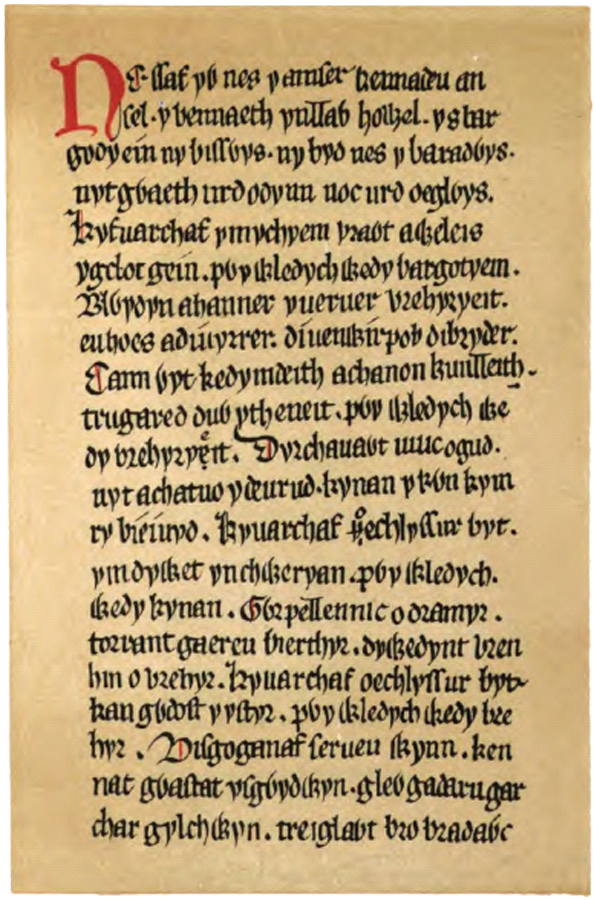 Neſſaf yỽ nes y amſer kennadeu an
ſel. y bennaeth ynllaỽ howel. ystar
godyein ny biſſỽys. ny byd nes y baradỽys.
nyt gỽaeth urd odyna noc urd oeglỽys.
Kyfuarchaf ymychyem vraỽt aweleis
ygclot gein. pỽy wledych wedy bargotyein.
Blỽydyn ahanner yueruer vrehyryeit.
eu hoes adiuyrrer. diuenwir pob dibryder.
Cann ỽyt kedymdeith achanon kunlleith.
trugared duỽ ytheneit. pỽy wledych we
dy vrehyryeit. Dyrchauaỽt unucogud.
nyt achatuo ydeurud. kynan y kỽn kym
ry bieiuyd. Kyuarchaf oechlyſſur byt.
ymdywet ynchweryan. pỽy wledych.
wedy kynan. Gỽr pellennic o dramyr.
torrant gaereu vierthyr. dywedynt vren
hin o vrehyr. Kyuarchaf oechlyſſur byt
kan gỽdoſt y yſtyr. pỽy wledych wedy bre
hyr. Diſgoganaf ſerueu wynn. ken
nat gỽaſtat yſgỽydwyn. gleỽ gadarn gar
char gylchwyn. treiglaỽt bro bradaỽc